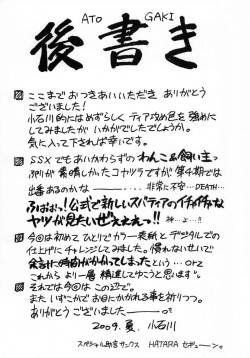 ATO GAKI
後書き
ここまでおつきあいいただき ありがとう
ございました!
小石川的にはめずらしく ティア攻め色を強めに
してみましたが いかがでしたでしょうか。
気に入って下されば幸いです。
SSXでもあいかわらずの わんこ&飼い主っ
ぷりが素晴しかったコナツラですが第4期では
出番あるのかな 非常に不安…DEATH…
ふはぁっ!公式で新しいスバティアのイチャイチャな
ヤツが見たいぜぇぇっ!!
今回は初めてひとりでカラー表紙とデジタルでの
仕上げにチャレンジしてみました。慣れないせいで
余計に時間がかかってしまったという…orz
これからより一層 精進してゆこうと思います。
それでは今回はこの辺で。
またいずこかでお目にかかれる事を祈りつつ。
ありがとうございました
2009.夏. 小石川
スペシャル助言サンクス HATARA